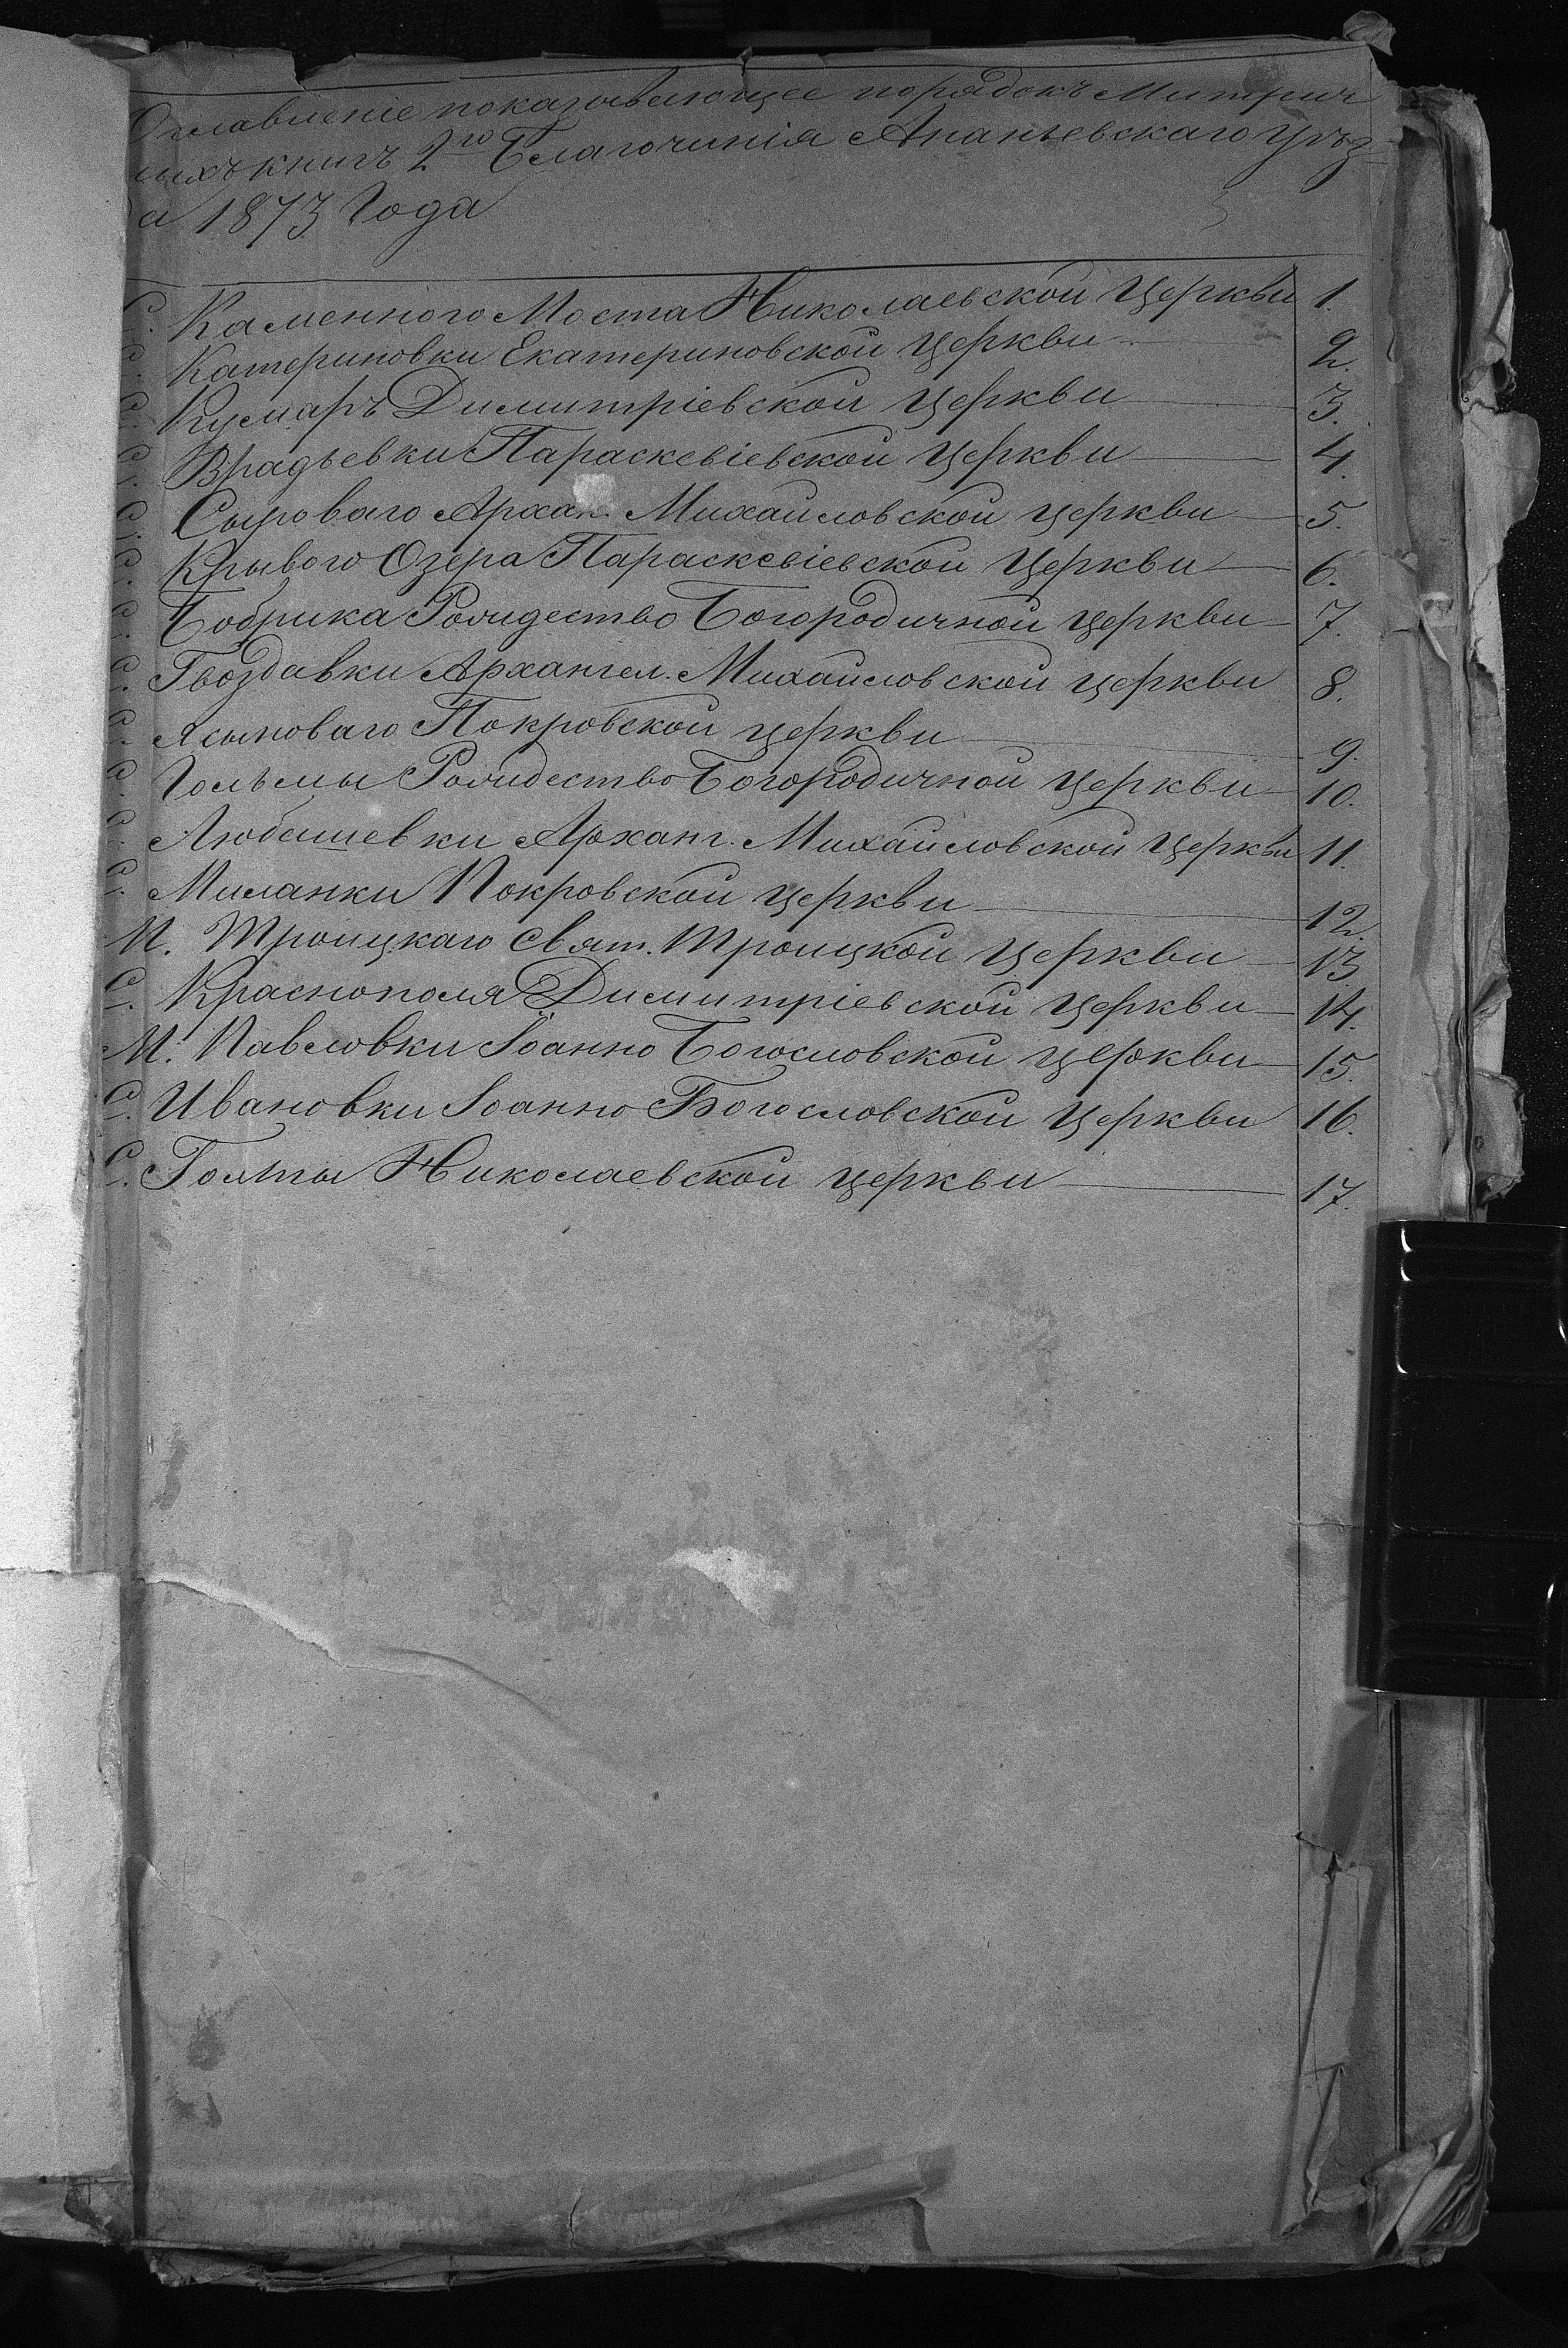 Оглавленіе показывающее порядокъ Митрич
ныхъ книгъ 2го Благочинія Ананьевскаго Уѣз-
а 1873 Года
С. Каменного Моста Николаевской Церкви 1.
С. Катериновки Екатериновской Церкви 2.
С. Кумаръ Димитріевской Церкви 3.
С. Врадьевки Параскевіевской Церкви 4.
С. Сыроваго Архан. Михайловской Церкви 5.
С. Крывого Озера Параскевіевской Церкви 6.
С. Бобрика Рождество Богородичной Церкви 7.
С. Гвоздавки Архангел. Михайловской Церкви 8.
С. Ясыноваго Покровской Церкви 9.
С. Гольмы Рождество Богородичной Церкви 10.
С. Любашевки Арханг. Михайловской Церкви 11.
С. Миланки Покровской Церкви 12.
М. Троицкаго Свят. Троицкой Церкви 13.
С. Краснополя Димитріевской Церкви 14.
М. Павловки Іоанно Богословской Церкви 15.
С. Ивановки Іоанно Богословской Церкви 16.
С. Голты Николаевской Церкви 17.